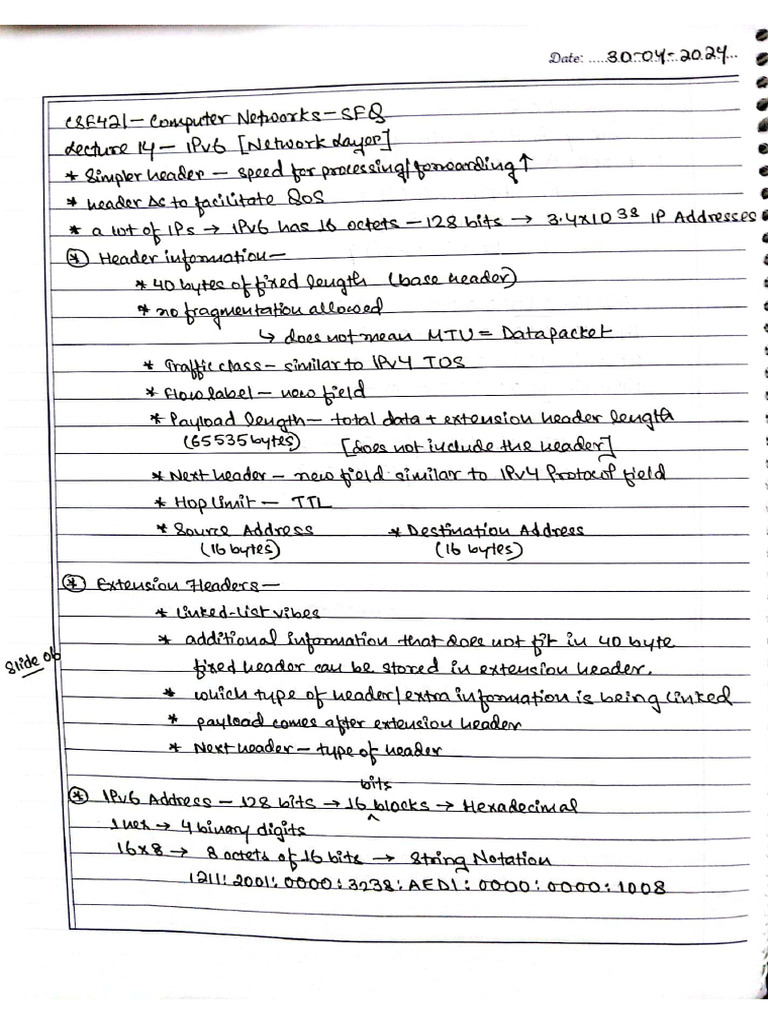 Date: .....30-04-2024...
CSE421 - Computer Networks - SFQ
Lecture 14 - IPv6 [Network Layer]
* Simpler header - speed for processing/forwarding ↑
* header Δc to facilitate QoS
* a lot of IPs → IPv6 has 16 octets - 128 bits → 3.4x10³⁸ IP Addresses
⊛ Header information -
* 40 bytes of fixed length (base header)
* no fragmentation allowed
↳ does not mean MTU = Datapacket
* Traffic class - similar to IPv4 TOS
* Flow label - new field
* Payload length - total data + extension header length
(65535 bytes) [does not include the header]
* Next header - new field similar to IPv4 Protocol field
* Hop Limit - TTL
* Source Address * Destination Address
(16 bytes) (16 bytes)
⊛ Extension Headers -
* linked-list vibes
* additional information that does not fit in 40 byte
Slide 06 fixed header can be stored in extension header.
* which type of header/extra information is being linked
* payload comes after extension header
* Next header - type of header
⊛ IPv6 Address - 128 bits → 16 bits blocks → Hexadecimal
1 hex → 4 binary digits
16x8 → 8 octets of 16 bits → String Notation
1211:2001:0000:3238:AED1:0000:0000:1008